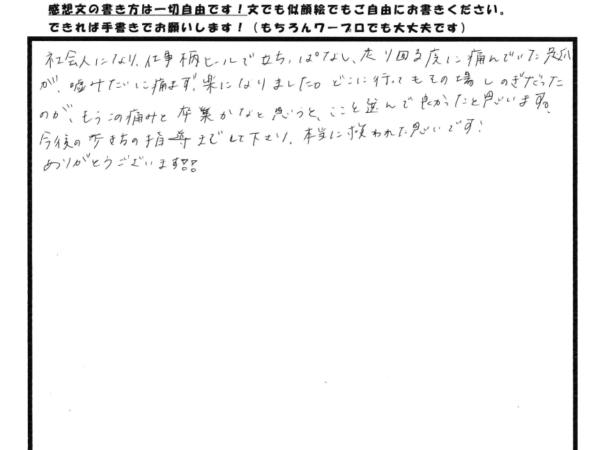 感想文の書き方は一切自由です！文でも似顔絵でもご自由にお書きください。
できれば手書きでお願いします！（もちろんワープロでも大丈夫です）
社会人になり、仕事柄ヒールで立ちっぱなし、走り回る度に痛んでいた足爪
が、嘘みたいに痛まず、楽になりました。どこに行ってもその場しのぎだった
のが、もうこの痛みと卒業かなと思うと、ここを選んで良かったと思います。
今後の歩き方の指導までして下さり、本当に救われた思いです！
ありがとうございます!!